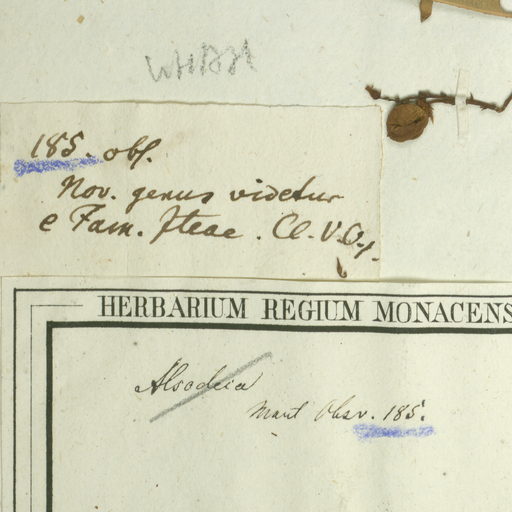 185. obs.
Nov. genus videtur
e Fam. Iteae. Cl. V. O. 1.
HERBARIUM REGIUM MONACENS
Alsodeia
Mart Obsv. 185.